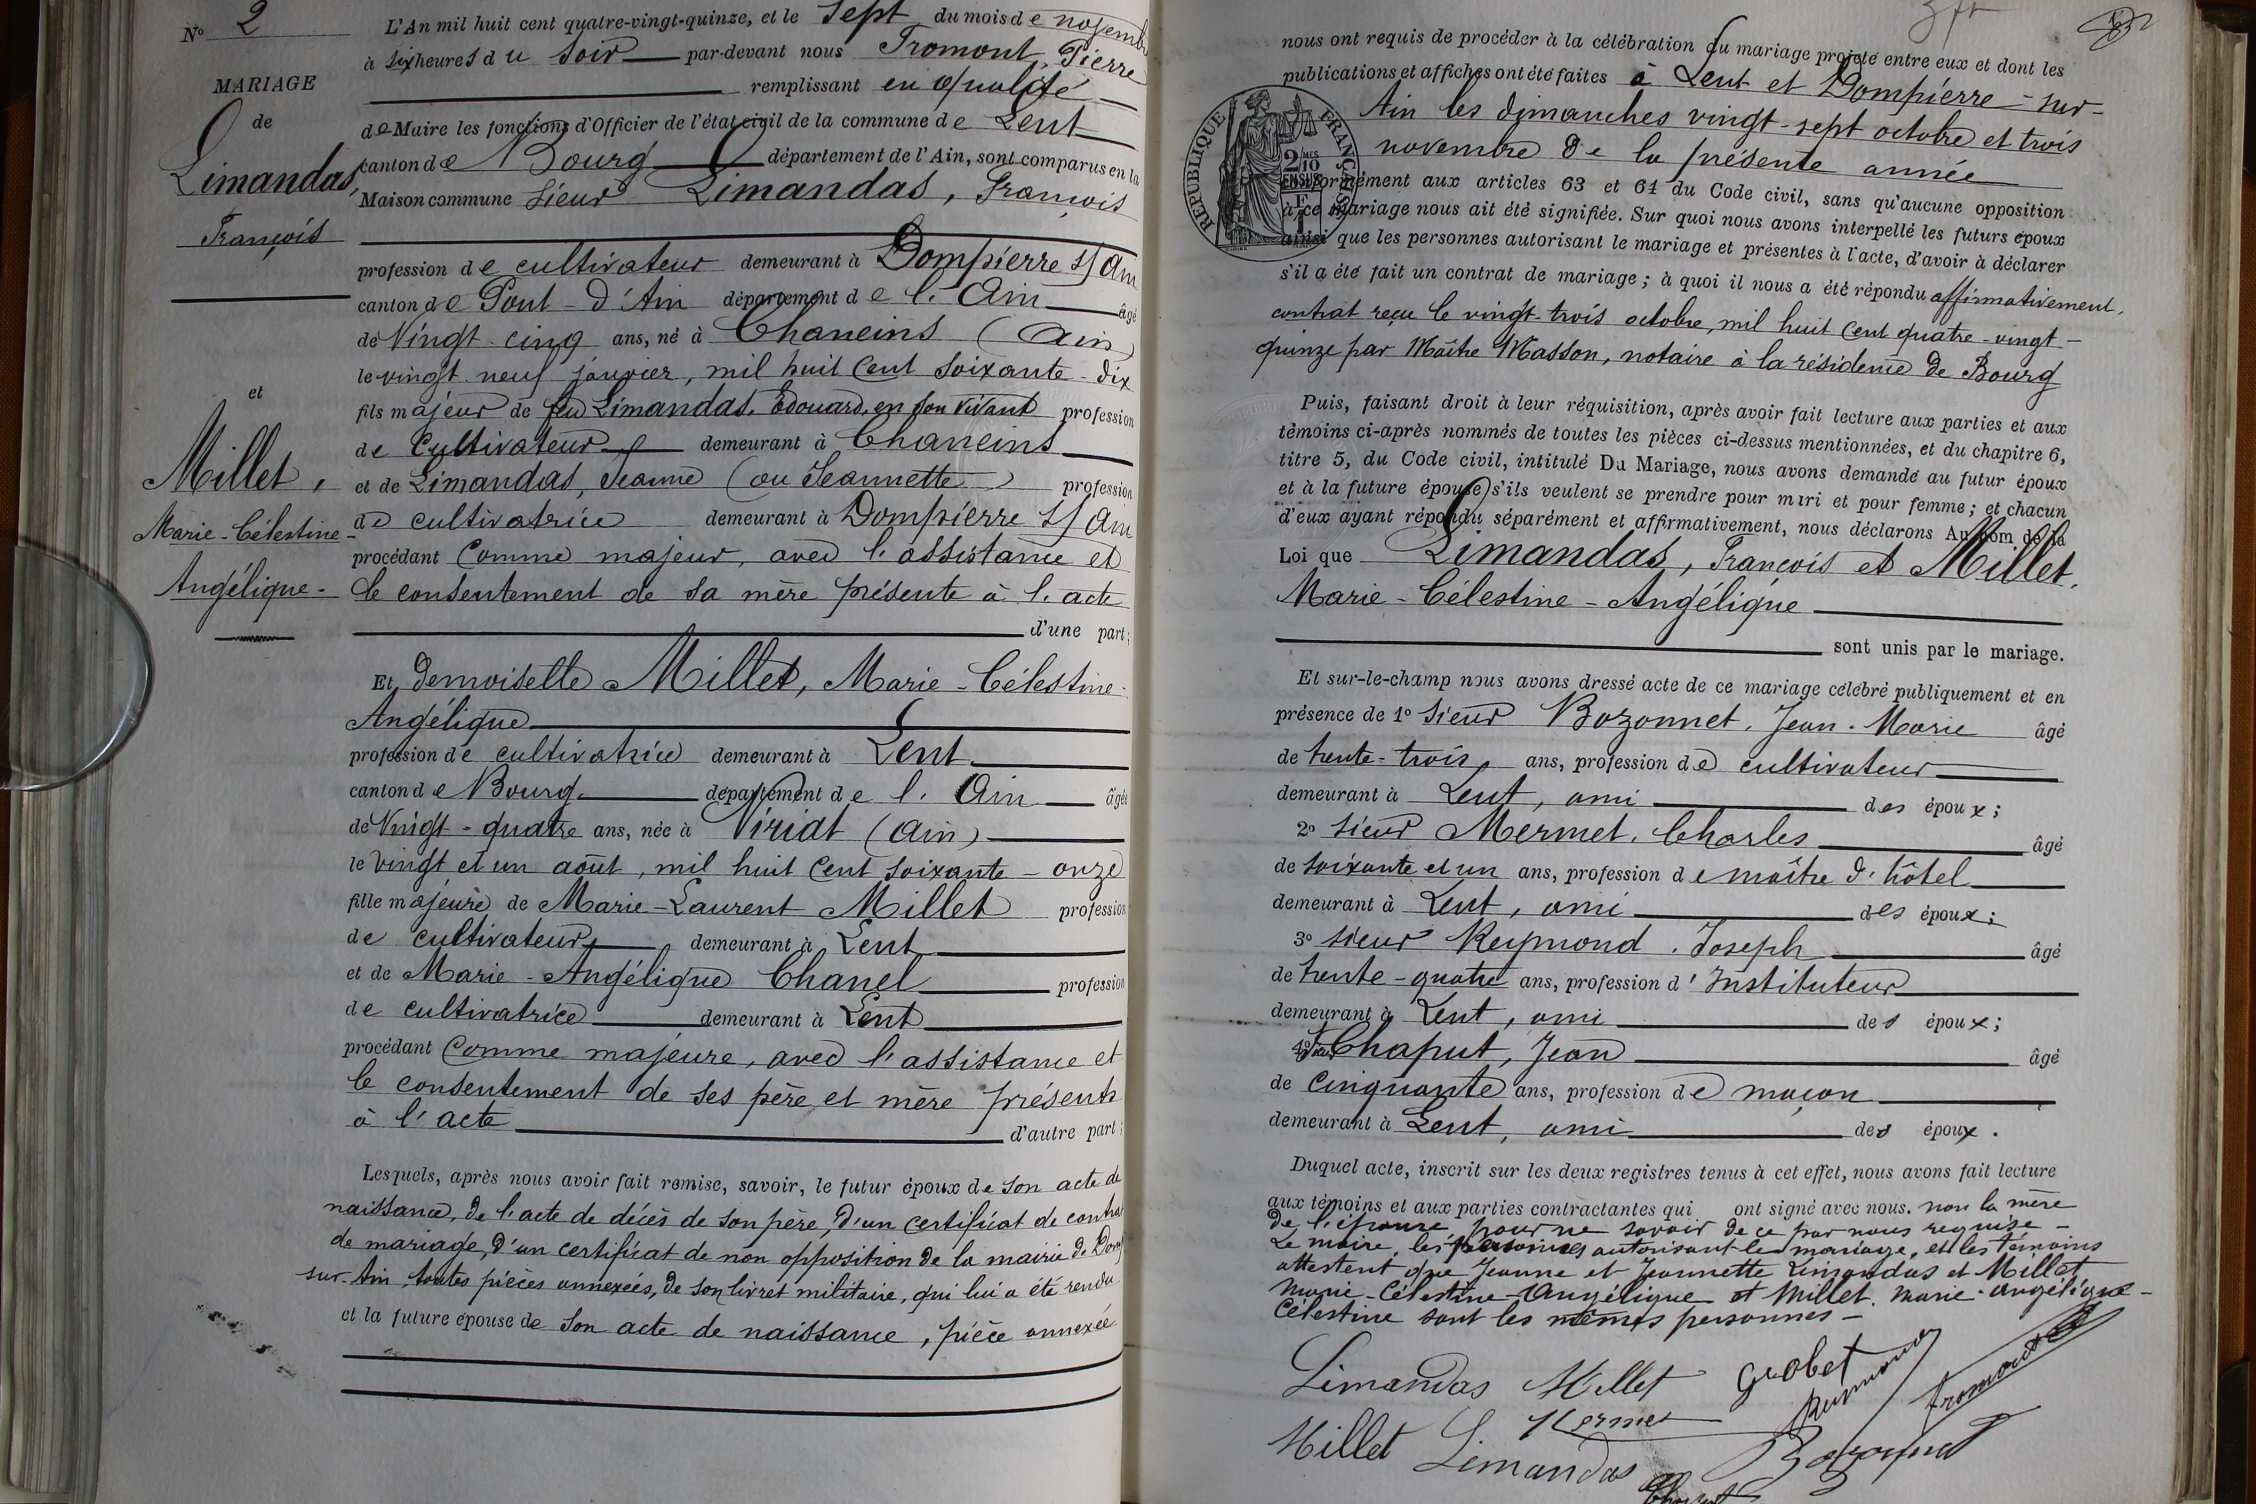 N° 2
MARIAGE
de
Limandas,
François
et
Millet,
Marie-Célestine-
Angélique-
L'An mil huit cent quatre-vingt-quinze, et le Sept du mois de novembre
à six heures du soir par-devant nous Tromont, Pierre
remplissant en qualité
de Maire les fonctions d'Officier de l'état civil de la commune de Lent
canton de Bourg département de l'Ain, sont comparus en la
Maison commune sieur Limandas, François
profession de cultivateur demeurant à Dompierre s/ Ain
canton de Pont-d'Ain département de l'Ain âgé
de Vingt cinq ans, né à Chaneins (Ain)
le vingt neuf janvier, mil huit cent soixante-dix
fils majeur de feu Limandas, Edouard, en son vivant profession
de cultivateur demeurant à Chaneins
et de Limandas, Jeanne (ou Jeannette) profession
de cultivatrice demeurant à Dompierre s/ Ain
procédant comme majeur, avec l'assistance et
le consentement de sa mère présente à l'acte
d'une part;
Et demoiselle Millet, Marie-Célestine-
Angélique
profession de cultivatrice demeurant à Lent
canton de Bourg département de l'Ain âgée
de Vingt-quatre ans, née à Viriat (Ain)
le vingt et un août, mil huit cent soixante-onze
fille majeure de Marie-Laurent Millet profession
de cultivateur demeurant à Lent
et de Marie-Angélique Chanel profession
de cultivatrice demeurant à Lent
procédant comme majeure, avec l'assistance et
le consentement de ses père et mère présents
à l'acte d'autre part;
Lesquels, après nous avoir fait remise, savoir, le futur époux de son acte de
naissance, de l'acte de décès de son père, d'un certificat de contrat
de mariage, d'un certificat de non opposition de la mairie de Domp
sur-Ain, toutes pièces annexées, de son livret militaire, qui lui a été rendu
et la future épouse de son acte de naissance, pièce annexée
nous ont requis de procéder à la célébration du mariage projeté entre eux et dont les
publications et affiches ont été faites à Lent et Dompierre-sur-
Ain les dimanches vingt-sept octobre et trois
novembre de la présente année
conformément aux articles 63 et 64 du Code civil, sans qu'aucune opposition
à ce mariage nous ait été signifiée. Sur quoi nous avons interpellé les futurs époux
ainsi que les personnes autorisant le mariage et présentes à l'acte, d'avoir à déclarer
s'il a été fait un contrat de mariage; à quoi il nous a été répondu affirmativement,
contrat reçu le vingt-trois octobre, mil huit cent quatre-vingt-
quinze par Maître Masson, notaire à la résidence de Bourg
RÉPUBLIQUE FRANÇAISE
2/10
EN SUS
Puis, faisant droit à leur réquisition, après avoir fait lecture aux parties et aux
témoins ci-après nommés de toutes les pièces ci-dessus mentionnées, et du chapitre 6,
titre 5, du Code civil, intitulé Du Mariage, nous avons demandé au futur époux
et à la future épouse s'ils veulent se prendre pour mari et pour femme; et chacun
d'eux ayant répondu séparément et affirmativement, nous déclarons Au Nom de la
Loi que Limandas, François et Millet,
Marie-Célestine-Angélique
sont unis par le mariage.
Et sur-le-champ nous avons dressé acte de ce mariage célébré publiquement et en
présence de 1° sieur Bozonnet, Jean-Marie âgé
de trente-trois ans, profession de cultivateur
demeurant à Lent, ami des époux;
2° sieur Mermet, Charles âgé
de soixante et un ans, profession de maître d'hôtel
demeurant à Lent, ami des époux;
3° sieur Reymond, Joseph âgé
de trente-quatre ans, profession d'Instituteur
demeurant à Lent, ami des époux;
4° sieur Chaput, Jean âgé
de cinquante ans, profession de maçon
demeurant à Lent, ami des époux.
Duquel acte, inscrit sur les deux registres tenus à cet effet, nous avons fait lecture
aux témoins et aux parties contractantes qui ont signé avec nous. non la mère
de l'épouse pour ne savoir de ce par nous requise-
Le maire, les personnes autorisant le mariage, et les témoins
attestent que Jeanne et Jeannette Limandas et Millet
Marie-Célestine-Angélique et Millet, Marie-Angélique-
Célestine sont les mêmes personnes-
Limandas Millet Grobet Reymond Tromont
Mermet
Millet Limandas Bozonnet
Chaput